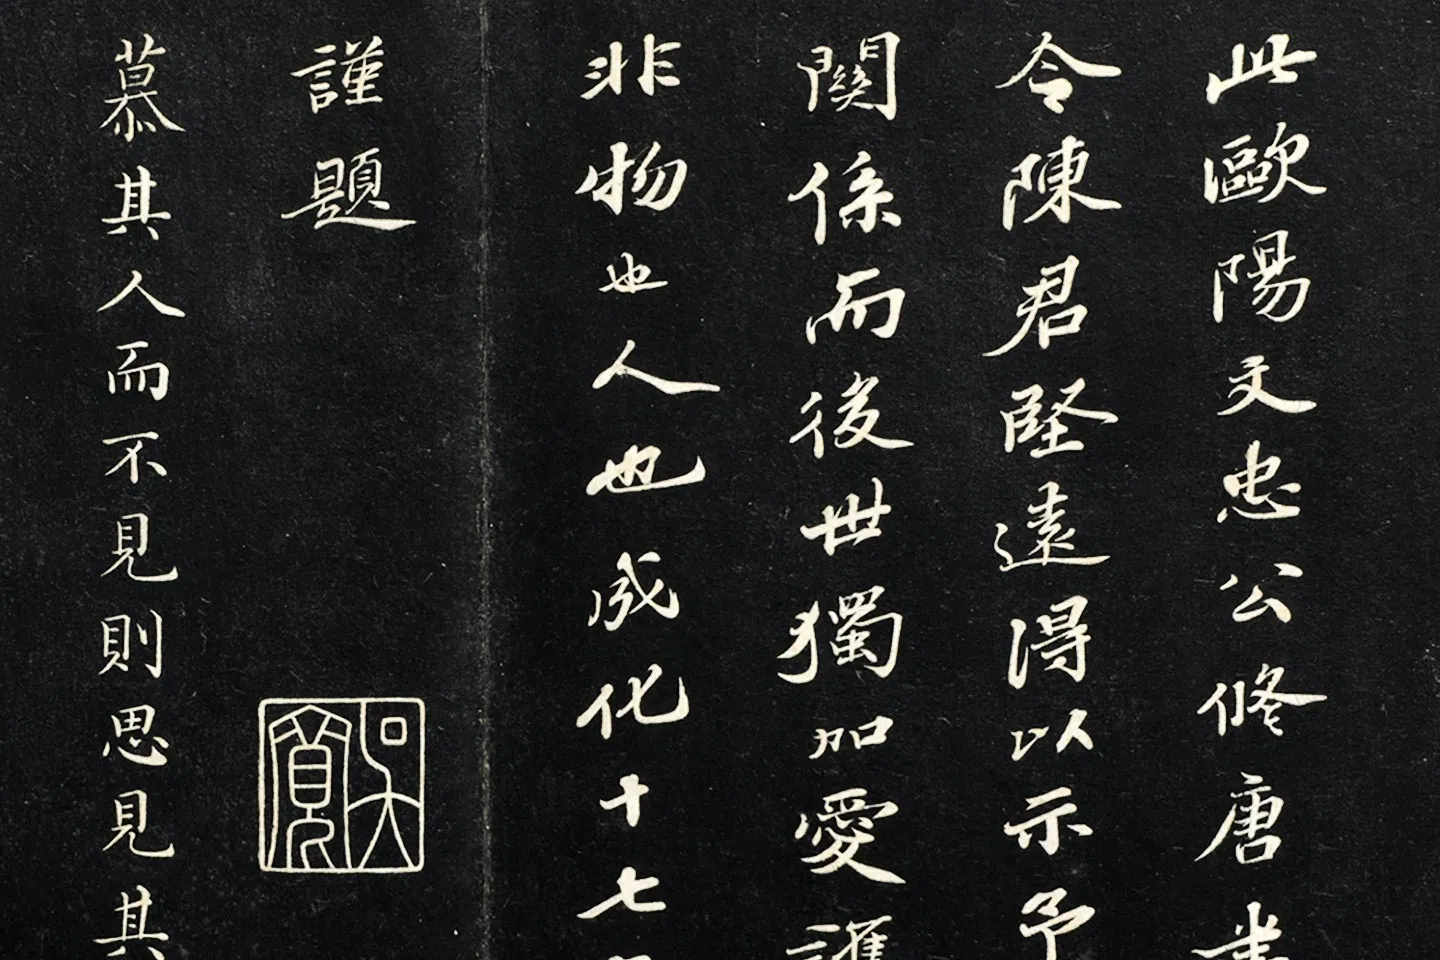 此歐陽文忠公修唐書
令陳君堅遠得以示予
關係而後世獨加愛護
非物也人也成化十七
謹題
吳寬
慕其人而不見則思見其